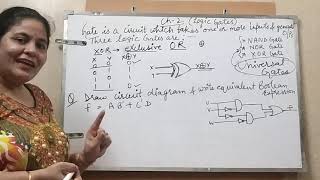 Ch-2 (Logic Gates)
Gate is a Circuit which takes one or more Inputs & generate O/P
Three Logic Gates are:
NAND Gate
NOR Gate
XOR Gate
XOR → exclusive OR ⊕
X Y X⊕Y
0 0 0
0 1 1
1 0 1
1 1 0
X
Y
X⊕Y
Universal
Gates
Q Draw Circuit diagram & write equivalent Boolean
Expression
f = A B' + C' D
U
V
W